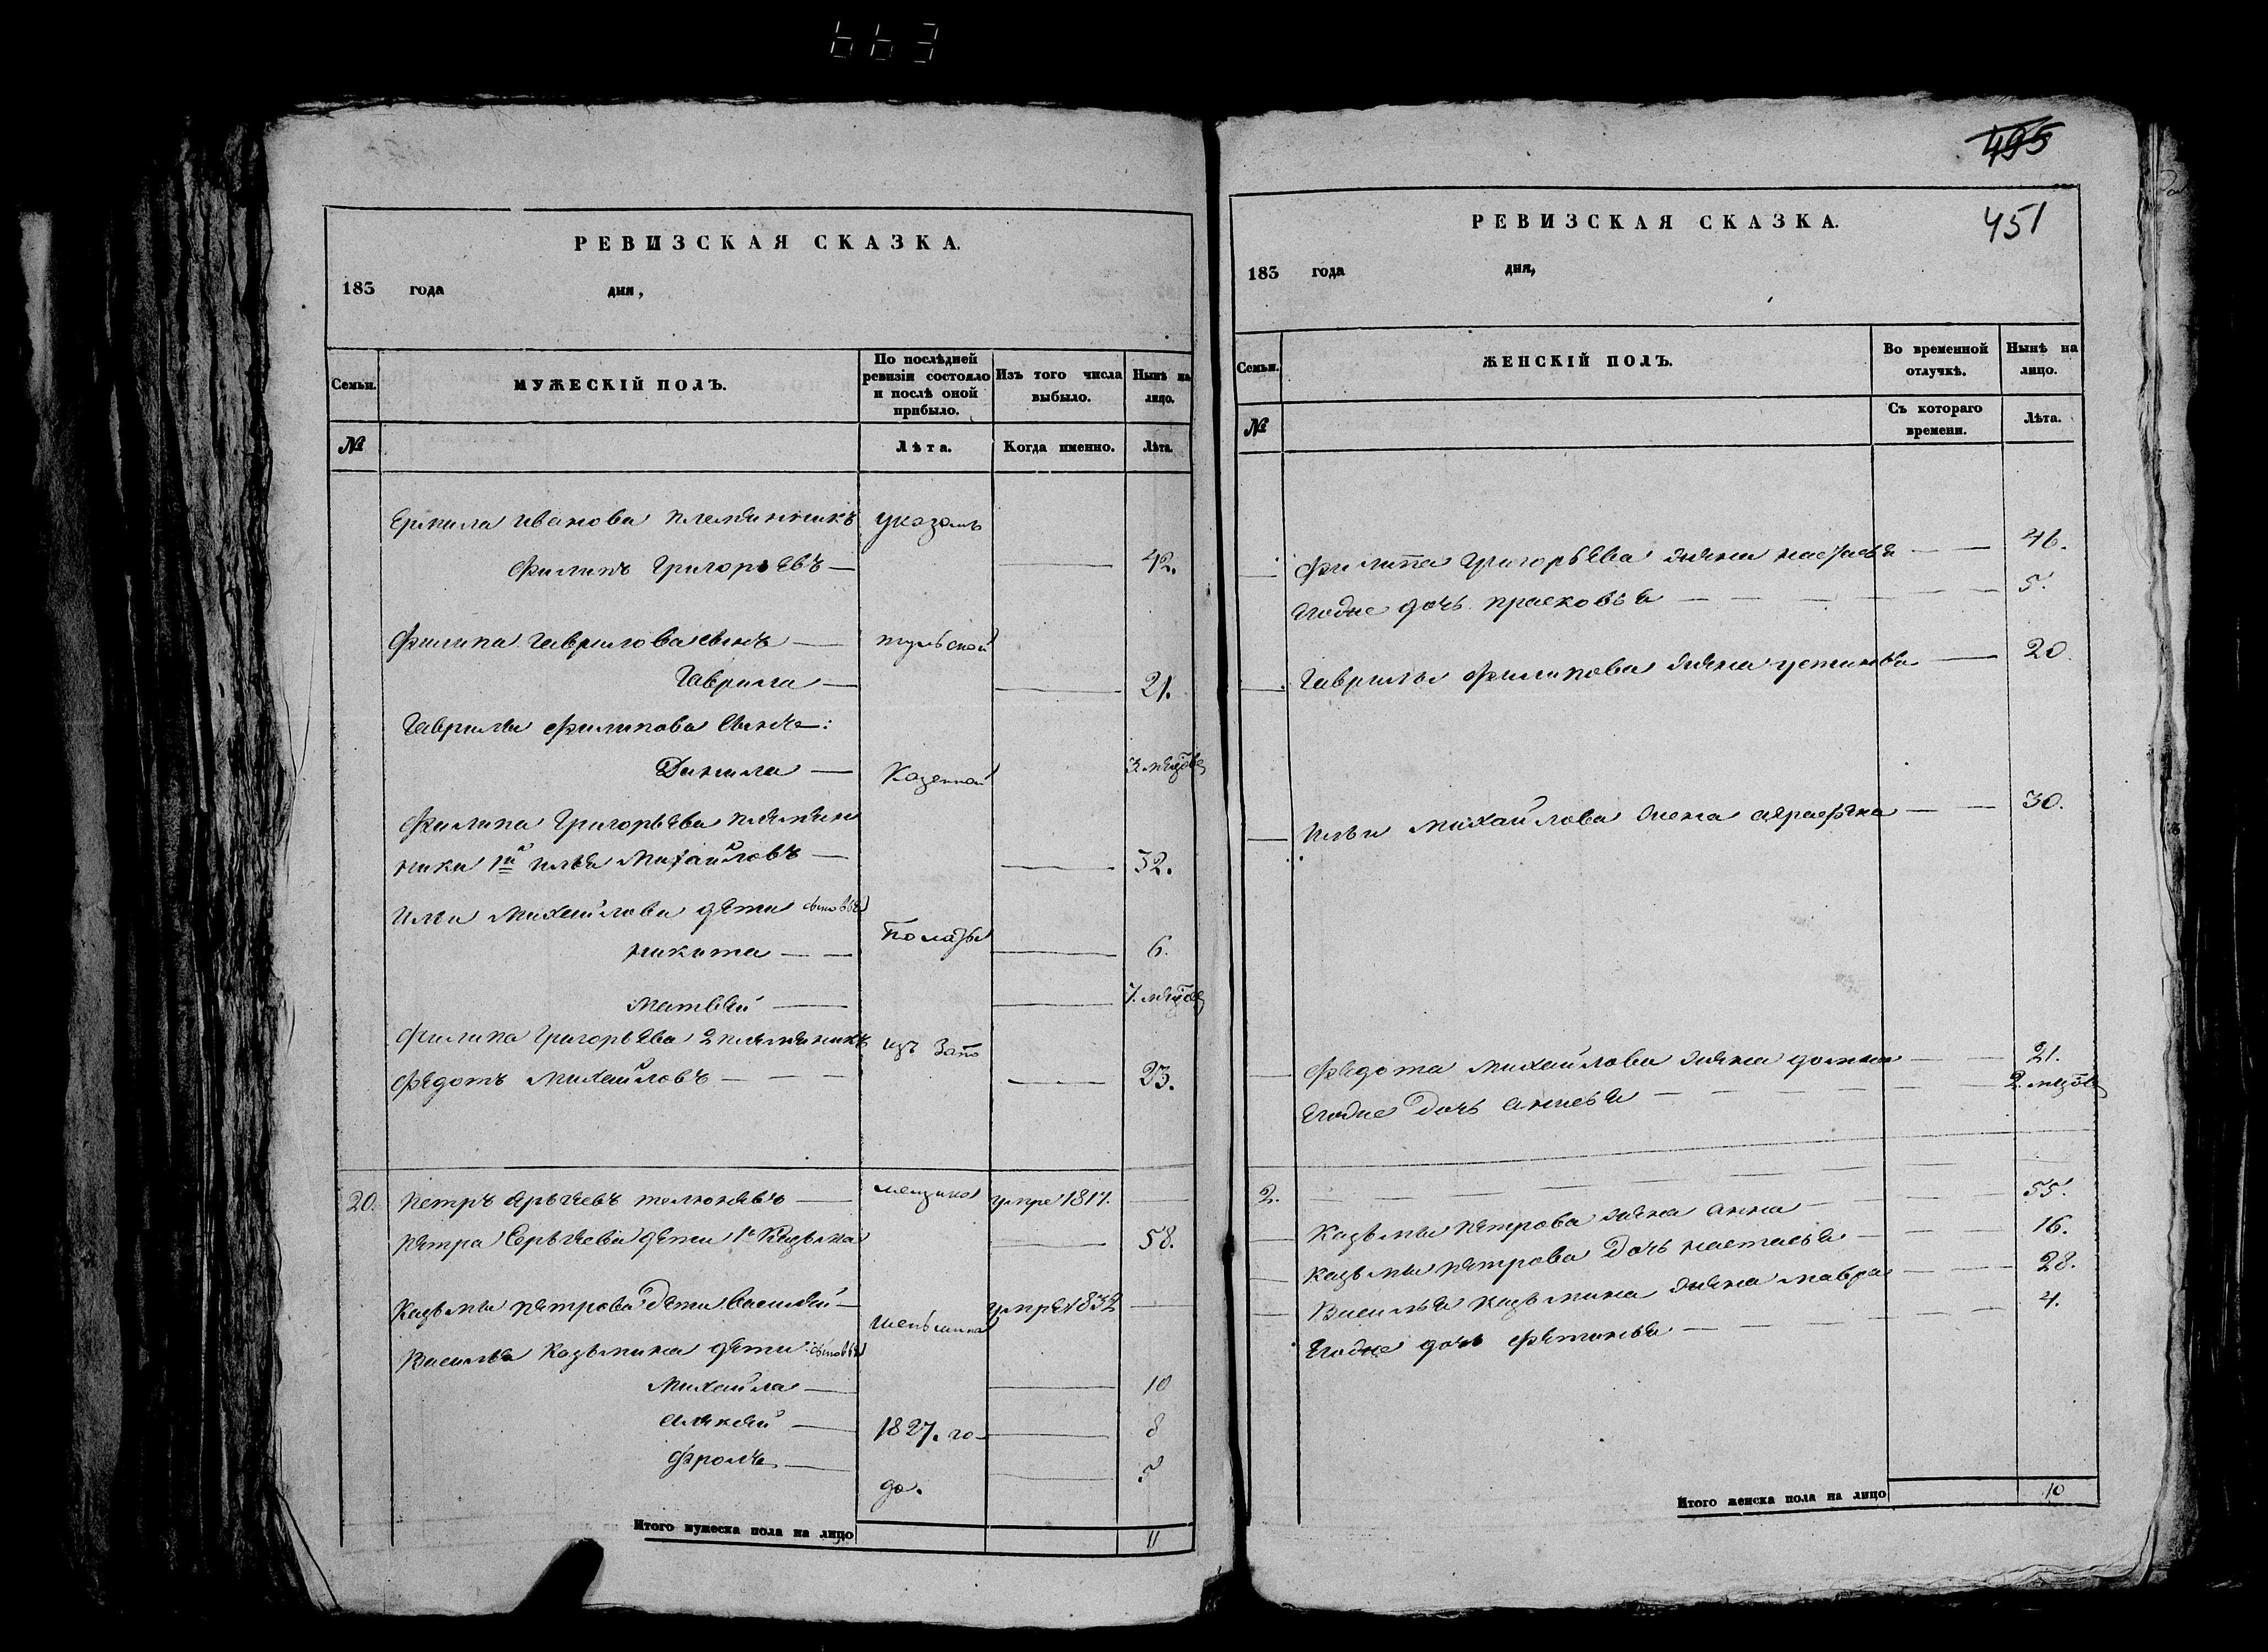 663
РЕВИЗСКАЯ СКАЗКА.
183 года дня,
Семьи.
МУЖЕСКІЙ ПОЛЪ.
По послѣдней ревизіи состояло и послѣ оной прибыло.
Изъ того числа выбыло.
Нынѣ на лицо.
№
Лѣта.
Когда именно.
Лѣта.
Ермила Иванова племянникъ указомъ
Филипъ Григорьевъ — — 42.
Филипа Гаврилова сынъ — тульской
Гаврила — — 21.
Гаврилы Филипова сынъ:
Данила — Казенной 3. мѣсяцовъ
Филипа Григорьева племян
ники 1й Илья Михайловъ — — 32.
Ильи Михайлова дети сыновья
Никита — — Полаты — 6.
Матвей — — 7. мѣсяцовъ
Филипа Григорьева 2 племяникъ изъ
Федотъ Михайловъ — — — — 23.
20. Петръ — умре 1817. —
Петра Сергеева дети 1й Кузьма — 58.
Кузьмы Петрова дети Василей — умре 1832 —
Василья Козьмина дети: сыновья
Михайла — — 10
Алексей — 1827. го- — 8
Фролъ — да. — 5
Итого мужеска пола на лицо 11
495
451
РЕВИЗСКАЯ СКАЗКА.
183 года дня,
Семьи.
ЖЕНСКІЙ ПОЛЪ.
Во временной отлучкѣ.
Нынѣ на лицо.
№
Съ котораго времени.
Лѣта.
— Филиппа Григорьева жена Настасья — — 46.
Егоже дочь Прасковья — — — — — 5.
— Гаврилы Филипова жена Устинья — — 20.
— Ильи Михайлова жена Аграфена — — 30.
— Федота Михайлова жена Домна — — 21.
Егоже дочь Анисья — — — — — 2. мѣсяцовъ
2. — — — — — —
— Кузьмы Петрова жена Анна — — 55.
— Кузьмы Петрова дочь Настасья — — — 16.
— Василья Кузьмина жена Мавра — — 28.
Егоже дочь Фетинья — — — — — 4.
Итого женска пола на лицо 10